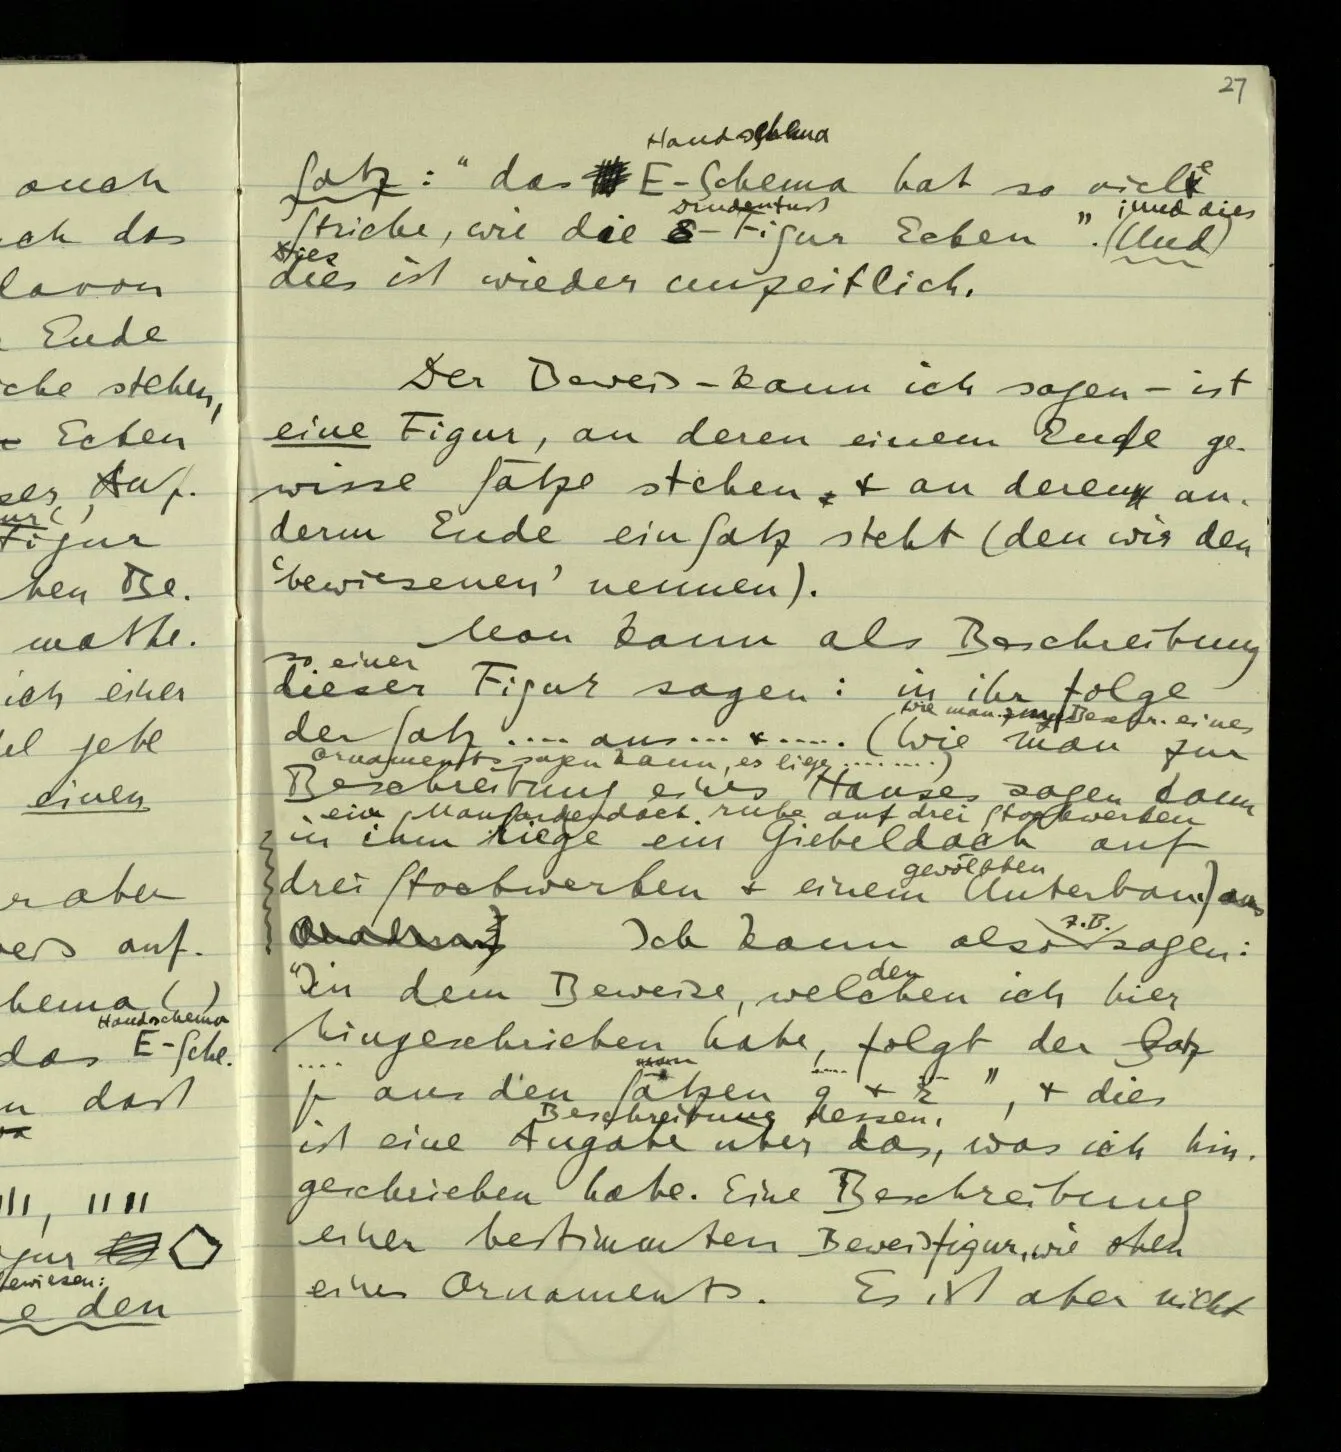 27
auch
ch das
davon
Ende
che stehen,
Ecken
ser Auf.
Figur
hen Be.
mathe.
ich einer
jede
einen
r aber
auf.
hema ( )
Handschema
das E-Sche.
n dast
||||, ||||
gur
bewiesen:
e den
Handschema
Satz: " das E-Schema hat so viele
Drudenfuß ; und dies
Striche, wie die Figur Ecken ". (Und)
dies
dies ist wieder unzeitlich.
Der Beweis – kann ich sagen – ist
eine Figur, an deren einem Ende ge-
wisse Sätze stehen, + an deren an-
derm Ende ein Satz steht (den wir den
'bewiesenen' nennen).
Man kann als Beschreibung
so einer
dieser Figur sagen: in ihr folge
wie man zur Beschr. eines
der Satz .... aus ... + ..... (Wie man zur
Ornaments sagen kann, es liege ........)
Beschreibung eines Hauses sagen kann
ein Mansardendach ruhe auf drei Stockwerken
in ihm liege ein Giebeldach auf
gewölbten
drei Stockwerken + einem Unterbau) aus
z.B.
Ich kann also sagen:
den
"In dem Beweise, welchen ich hier
hingeschrieben habe, folgt der Satz
....
p aus den Sätzen q + r ", + dies
Beschreibung dessen,
ist eine Angabe über das, was ich hin-
geschrieben habe. Eine Beschreibung
einer bestimmten Beweisfigur, wie oben
eines Ornaments. Es ist aber nicht